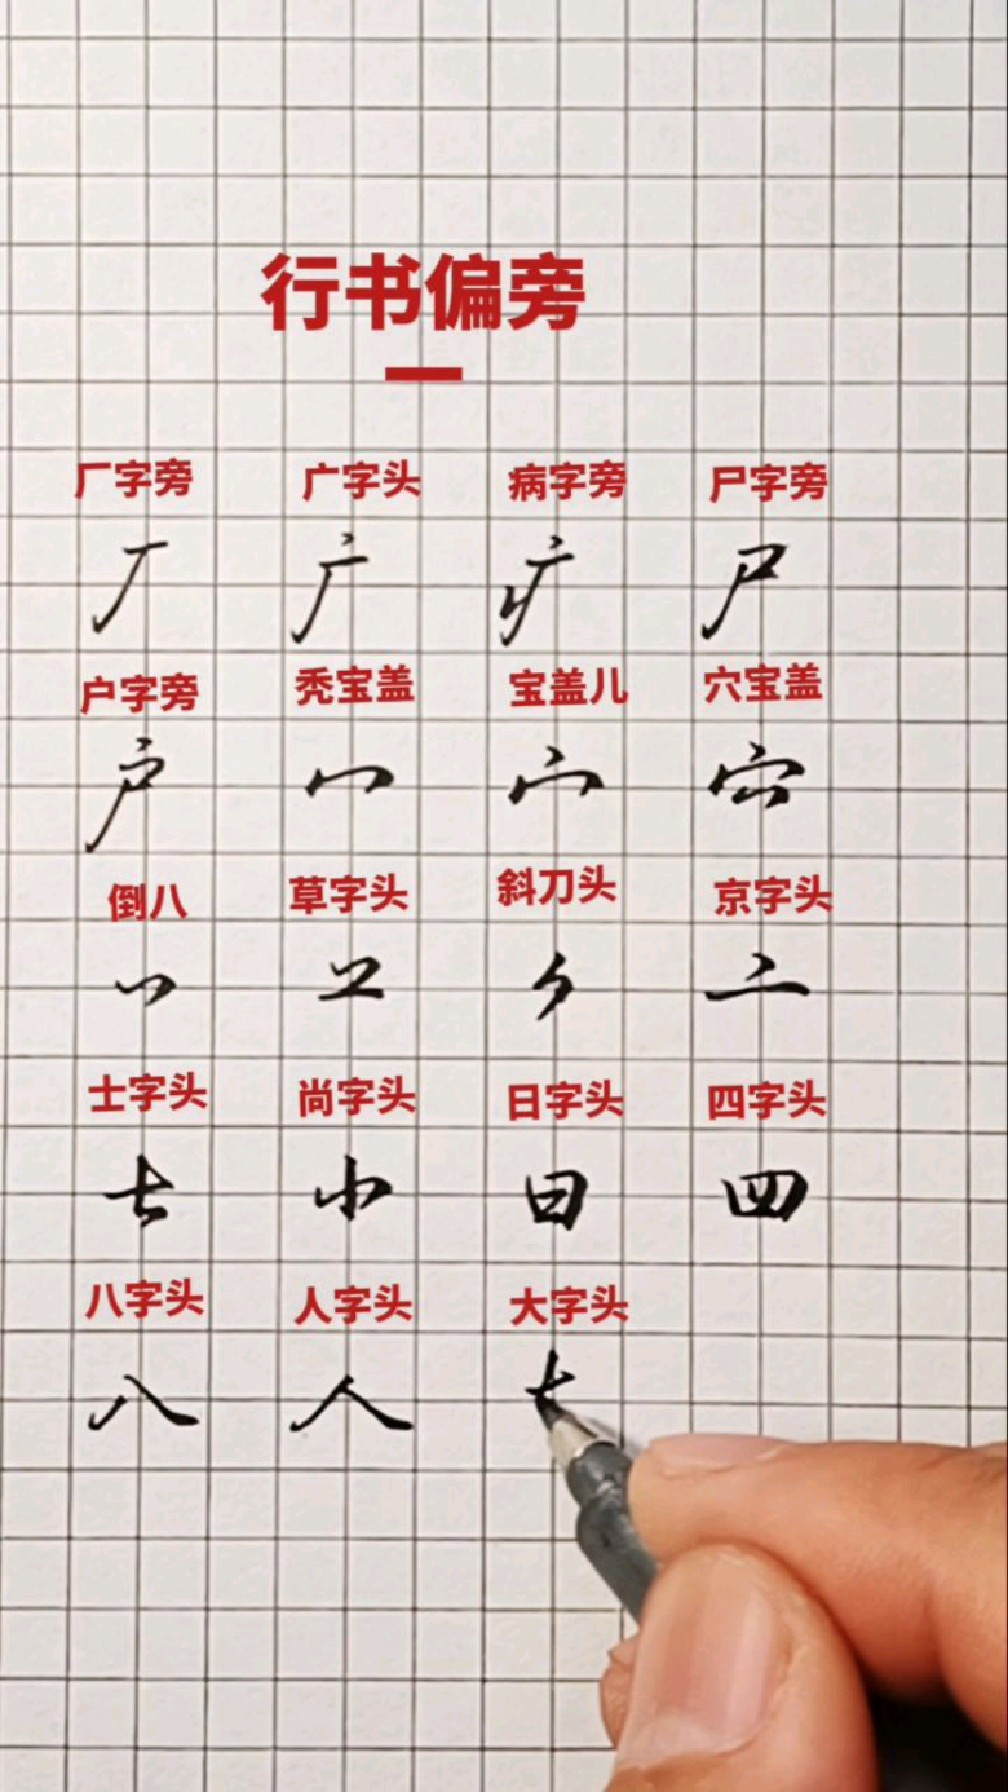 行书偏旁
厂字旁 广字头 病字旁 尸字旁
厂 广 疒 尸
户字旁 秃宝盖 宝盖儿 穴宝盖
户 冖 宀 穴
倒八 草字头 斜刀头 京字头
丷 艹 ⺈ 亠
士字头 尚字头 日字头 四字头
士 ⺌ 日 四
八字头 人字头 大字头
八 人